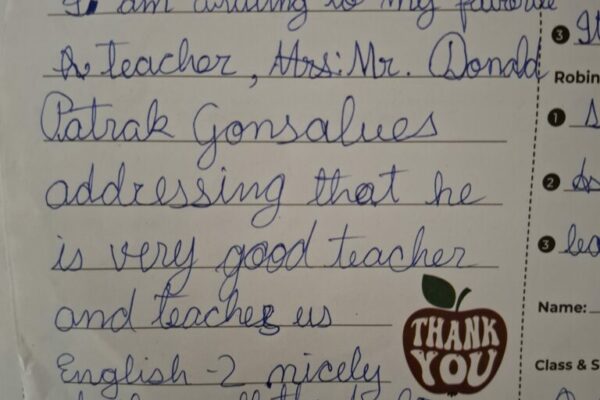 I am writing to my favorite
teacher, Mrs. Mr. Donald
Patrak Gonsalues
addressing that he
is very good teacher
and teaches us
English-2 nicely
THANK
YOU
3
Robin
1
2
3
Name:
Class & S